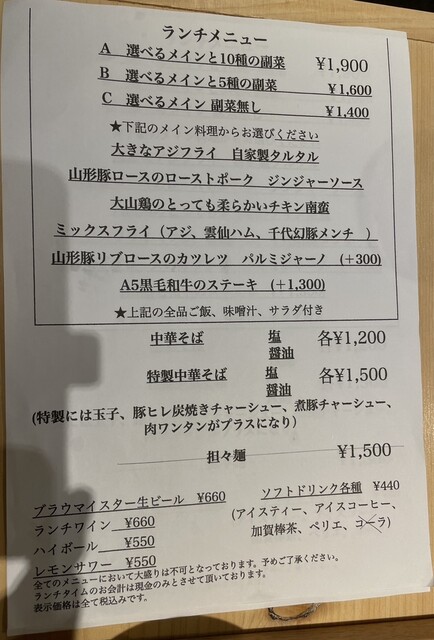 ランチメニュー
A 選べるメインと10種の副菜 ¥1,900
B 選べるメインと5種の副菜 ¥1,600
C 選べるメイン 副菜無し ¥1,400
★下記のメイン料理からお選びください
大きなアジフライ 自家製タルタル
山形豚ロースのローストポーク ジンジャーソース
大山鶏のとっても柔らかいチキン南蛮
ミックスフライ（アジ、雲仙ハム、千代幻豚メンチ ）
山形豚リブロースのカツレツ パルミジャーノ (+300)
A5黒毛和牛のステーキ (+1,300)
★上記の全品ご飯、味噌汁、サラダ付き
中華そば 塩 各¥1,200
醤油
特製中華そば 塩 各¥1,500
醤油
(特製には玉子、豚ヒレ炭焼きチャーシュー、煮豚チャーシュー、
肉ワンタンがプラスになり）
担々麺 ¥1,500
ブラウマイスター生ビール ¥660
ランチワイン ¥660
ハイボール ¥550
レモンサワー ¥550
ソフトドリンク各種 ¥440
(アイスティー、アイスコーヒー、
加賀棒茶、ペリエ、コーラ)
全てのメニューにおいて大盛りは不可となっております。予めご了承ください。
ランチタイムのお会計は現金のみとさせて頂いております。
表示価格は全て税込みです。